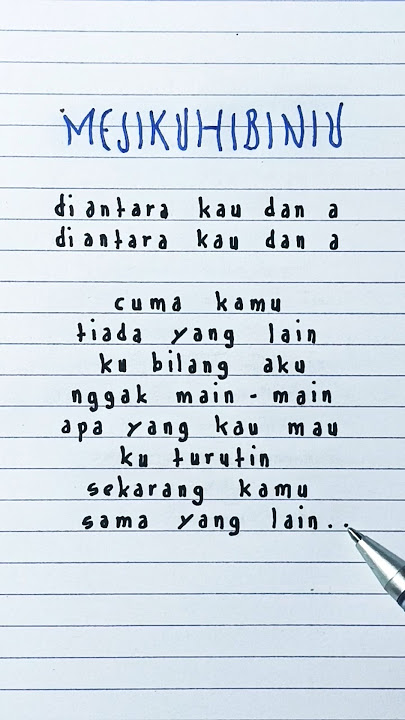 MEJIKUHIBINIU
diantara kau dan a
diantara kau dan a
cuma kamu
tiada yang lain
ku bilang aku
nggak main-main
apa yang kau mau
ku turutin
sekarang kamu
sama yang lain..